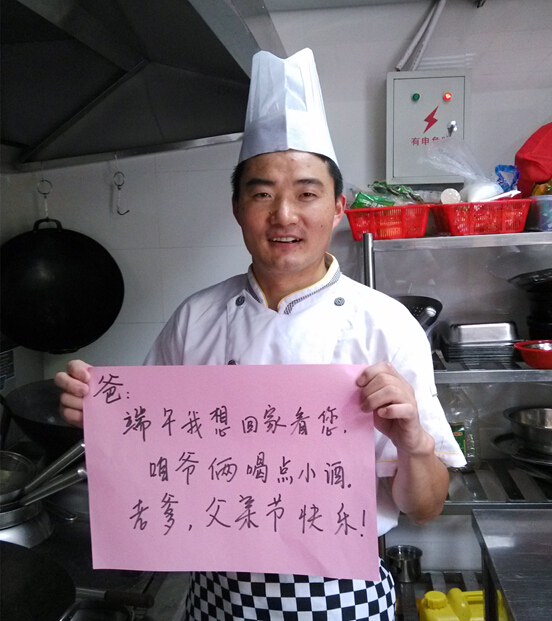 有电危
爸:
端午我想回家看您.
咱爷俩喝点小酒.
老爹,父亲节快乐!